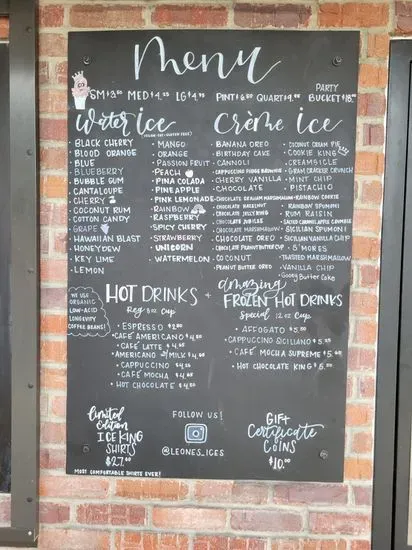 Menu
SM $3.50 MED $4.25 LG $4.75 PINT $6.00 QUART
PARTY
BUCKET
Water ice
Crème ice
BLACK CHERRY
BLOOD ORANGE
BLUE
BLUEBERRY
BUBBLE GUM
CANTALOUPE
CHERRY
COCONUT RUM
COTTON CANDY
GRAPE
HAWAIIAN BLAST
HONEYDEW
KEY LIME
LEMON
MANGO
ORANGE
PASSION FRUIT
PEACH
PINA COLADA
PINEAPPLE
PINK LEMONADE
RAINBOW
RASPBERRY
SPICY CHERRY
STRAWBERRY
UNICORN
WATERMELON
BANANA OREO
BIRTHDAY CAKE
CANNOLI
CAPPUCCINO FUDGE BROWNIE
CHERRY VANILLA
CHOCOLATE
CHOCOLATE GRAHAM MARSHMALLOW
CHOCOLATE HAZELNUT
CHOCOLATE JELLY RING
CHOCOLATE JUBILEE
CHOCOLATE MARSHMALLOW
CHOCOLATE OREO
CHOCOLATE PEANUT BUTTER CUP
COCONUT
PEANUT BUTTER OREO
COCONUT CREAM PIE
COOKIE KING
CREAMSICLE
GRAM CRACKER CRUNCH
MINT CHIP
PISTACHIO
RAINBOW COOKIE
RAINBOW SPUMONI
RUM RAISIN
SALTED CARAMEL APPLE CRUMBLE
SICILIAN SPUMONI
SICILIAN VANILLA CHIP
S'MORES
TOASTED MARSHMALLOW
VANILLA CHIP
GOOEY BUTTER CAKE
WE USE
ORGANIC
LOW-ACID
LONGEVITY
COFFEE BEANS!
HOT DRINKS +
Reg 8oz Cup
ESPRESSO
CAFÉ AMERICANO
CAFÉ LATTE
AMERICANO w/ MILK
CAPPUCCINO
CAFÉ MOCHA
HOT CHOCOLATE
amazing
FROZEN HOT DRINKS
Special 12oz Cup
AFFOGATO
CAPPUCCINO SICILIANO
CAFÉ MOCHA SUPREME
HOT CHOCOLATE KING
limited
Edition
ICE KING
SHIRTS
$27.00
MOST COMFORTABLE SHIRTS EVER!
FOLLOW US!
@LEONES_ICES
GIFT
Certificate
COINS
$10.00